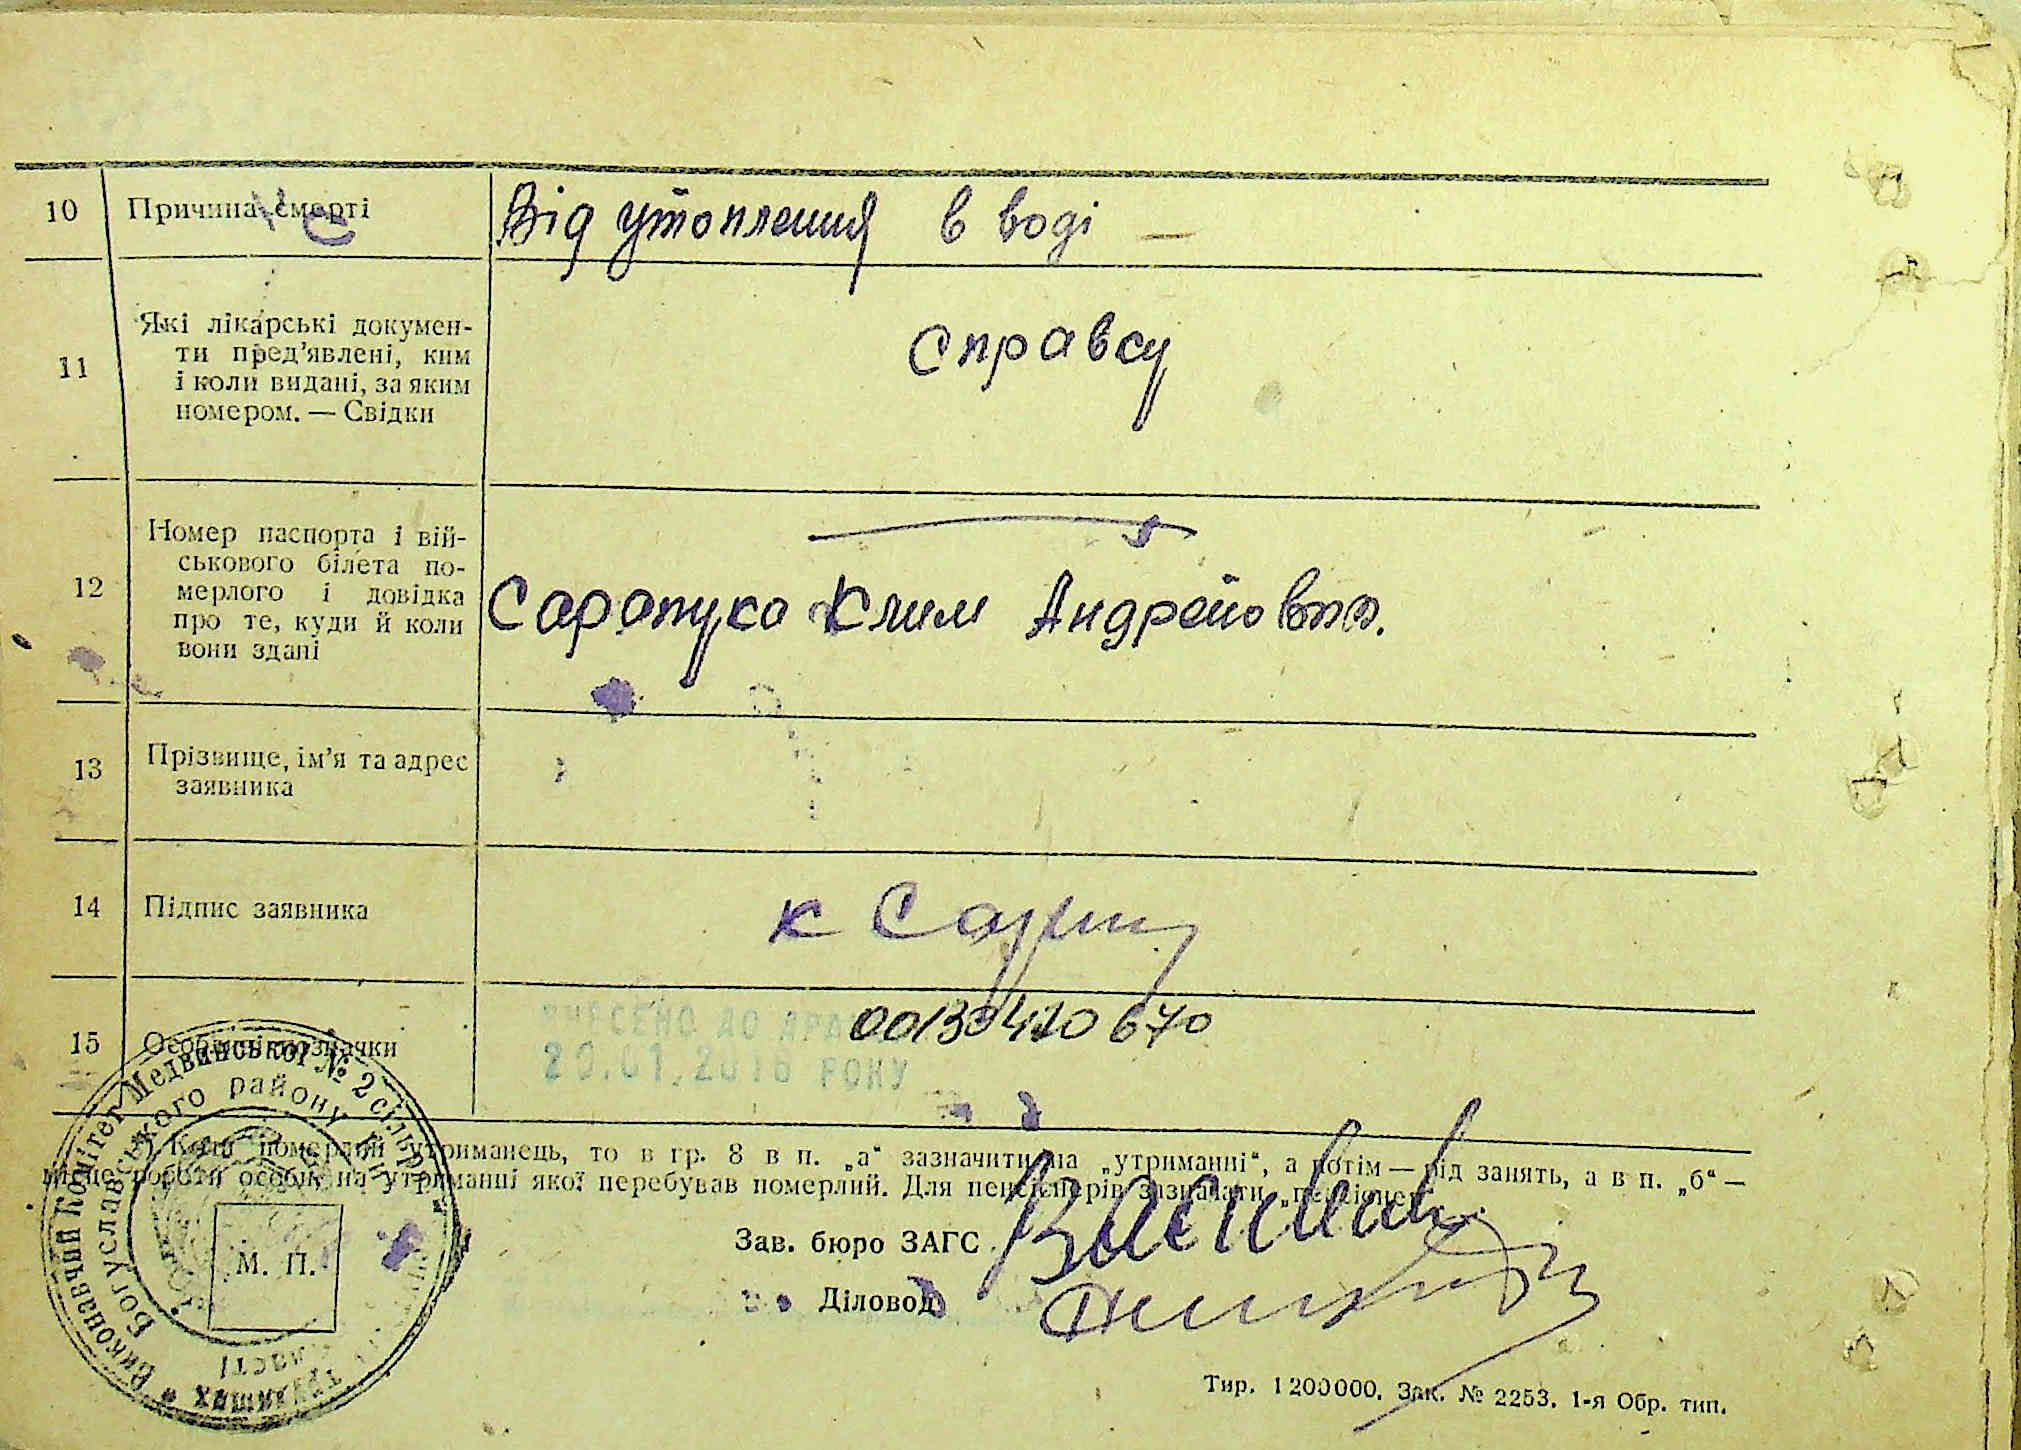 10 Причина смерті Від утоплення в воді —
11 Які лікарські докумен-
ти пред’явлені, ким
і коли видані, за яким
номером. — Свідки
Справку
12 Номер паспорта і вій-
ськового білета по-
мерлого і довідка
про те, куди й коли
вони здані
Сарапука Клим Андрейович.
13 Прізвище, ім’я та адрес
заявника
14 Підпис заявника
к
15 Особливі позначки
ВНЕСЕНО ДО
20.01.2016 РОКУ
00133410670
*) Коли померлий утриманець, то в гр. 8 в п. „а“ зазначити на „утриманні“, а потім — рід занять, а в п. „б“ —
місце роботи особи, на утриманні якої перебував померлий. Для пенсіонерів зазначати „пенсіонер“.
Зав. бюро ЗАГС
М. П.
Діловод
Виконавчий Комітет Медвинської № 2 сільради
Богуславського району
області
трудящих
Тир. 1200000. Зак. № 2253. 1-я Обр. тип.